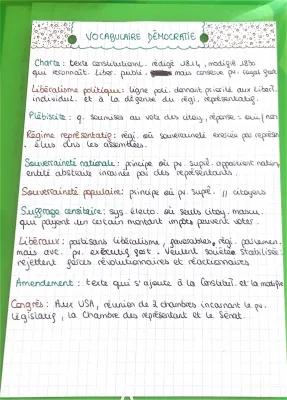 VOCABULAIRE DÉMOCRATIE
Charte : texte constitutionnel. rédigé 1814, modifié 1830
qui reconnaît. liber. publi. mais conserve pv. royal fort
Libéralisme politique : ligne poli. donnant priorité aux libert.
individuel. et à la défense du régi. représentatif.
Plébiscite : q. soumises au vote des citoy, réponse : oui / non
Régime représentatif : régi. où souveraineté exercée par représen.
élus dns les assemblées.
Souveraineté nationale : principe où pv. supé. appartient nation,
entité abstraite incarnée par des représentants.
Souveraineté populaire : principe où pv. supé. // citoyens
Suffrage censitaire : sys. électo. où seuls citoy. mascu.
qui payent un certain montant impôts peuvent voter.
Libéraux : partisans libéralisme, favorables régi. parlemen.
mais avc. pv. exécutif fort. Veulent société stabilisée
rejettent forces révolutionnaires et réactionnaires
Amendement : texte qui s'ajoute à la Constitut. et la modifie
Congrès : Aux USA, réunion de 2 chambres incarnant le pv.
législatif, la Chambre des représentant et le Sénat.